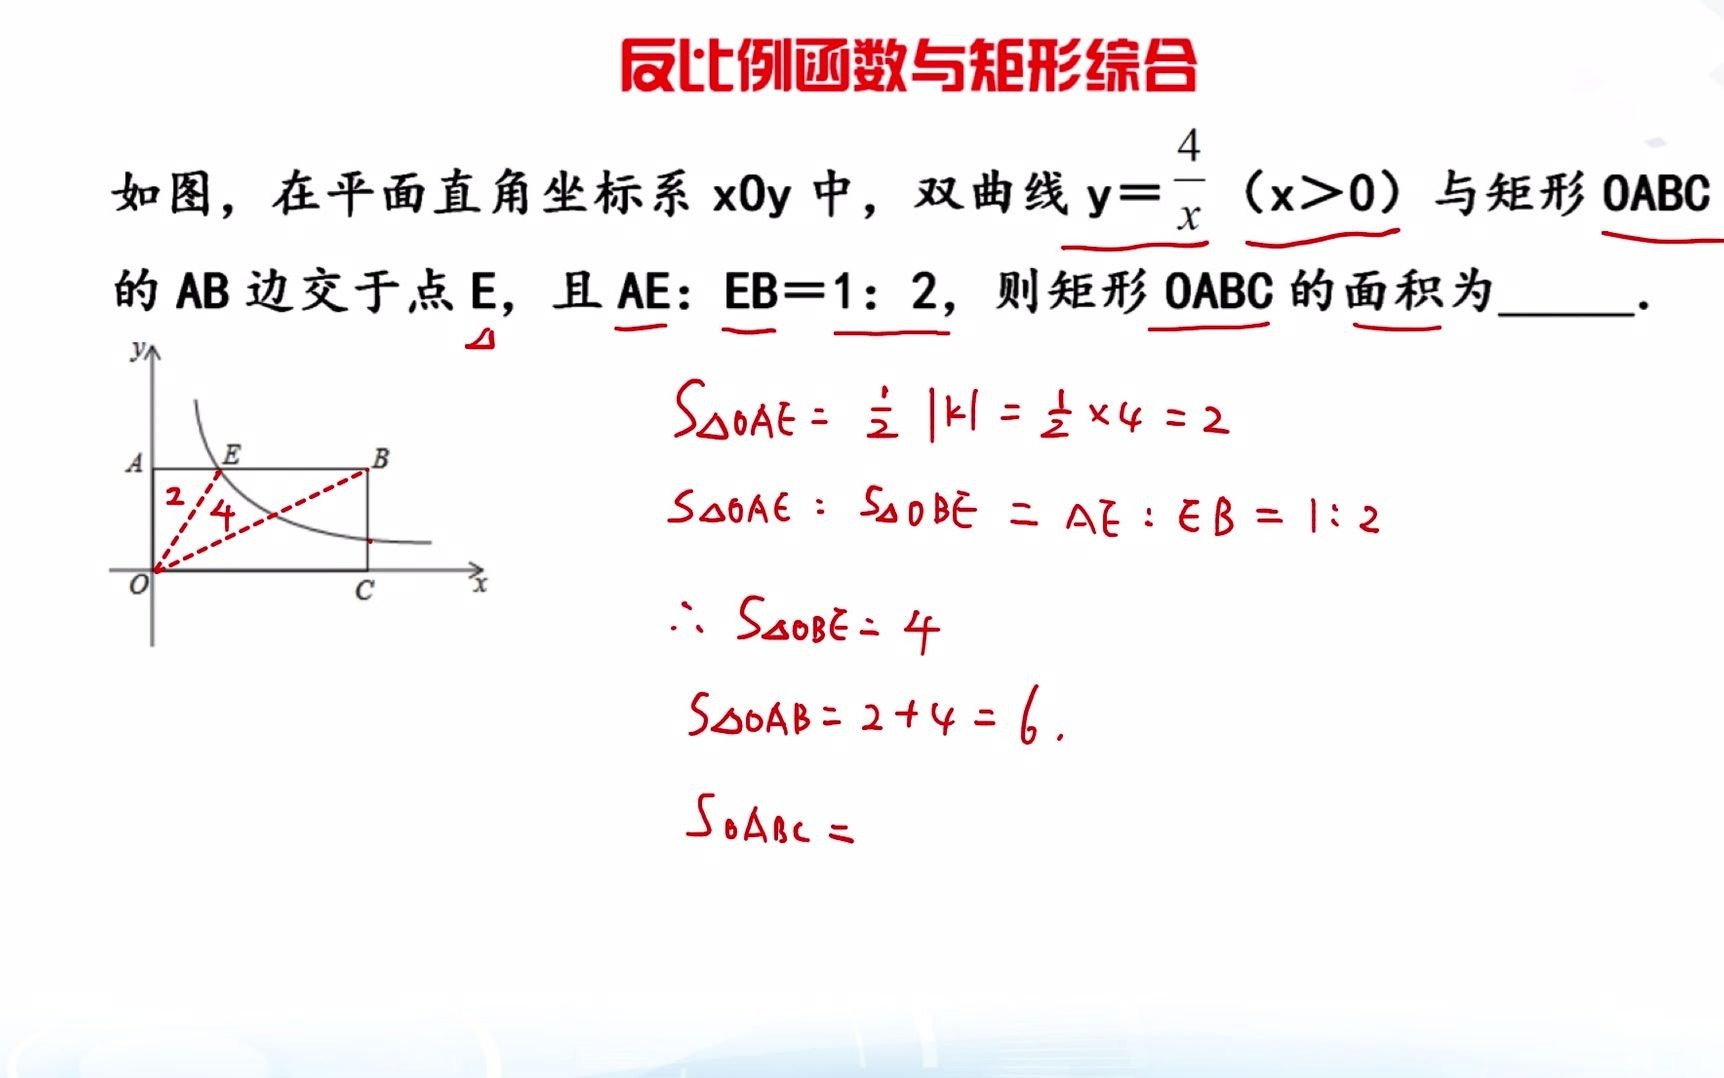 反比例函数与矩形综合
如图，在平面直角坐标系 xOy 中，双曲线 y＝4/x（x＞0）与矩形 OABC
的 AB 边交于点 E，且 AE：EB＝1：2，则矩形 OABC 的面积为______.
y
A E B
2 4
O C x
S△OAE = 1/2 |k| = 1/2 × 4 = 2
S△OAE : S△OBE = AE : EB = 1 : 2
∴ S△OBE = 4
S△OAB = 2 + 4 = 6 .
SOABC =